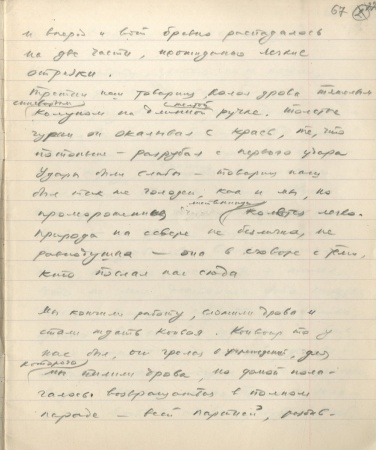 67
и вперед и этой бревно распадалось
на две части, прожиданно легкие
отрезки.
Третий наш товарищ колол дрова тяжелым
стальным
колуном на длинной ручке. Толстые
чурки он окалывал с краев, те, что
потоньше – разрубал с первого удара
Удары были слабы – товарищ наш
был так же голоден, как и мы, но
промороженная лиственница колется легко.
Природа на севере не безлична, не
равнодушна – она в сговоре с теми,
кто послал нас сюда
Мы кончили работу, сложили дрова и
стали ждать конвоя. Конвоир-то у
нас был, он грелся в учреждении, для
которого
мы пилили дрова, но домой пола-
галось возвращаться в полном
параде – всей партией, разбив-